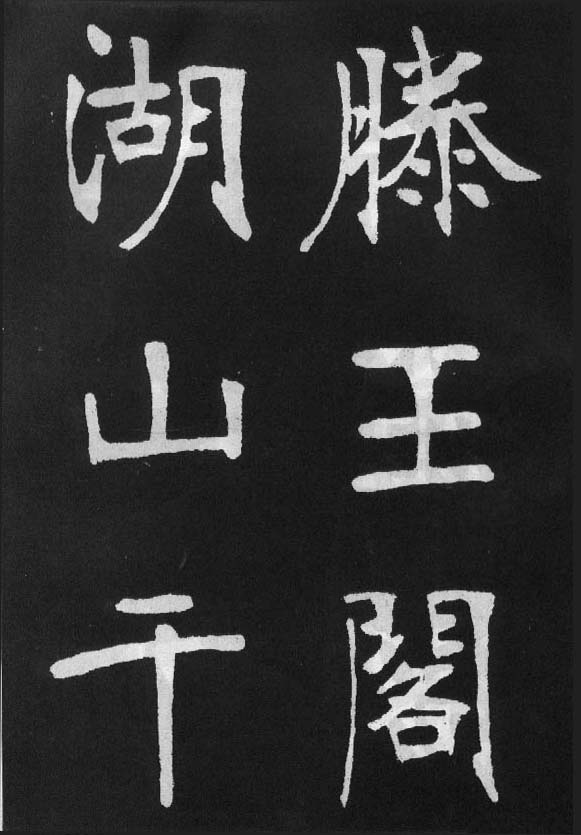 滕王閣
湖山千